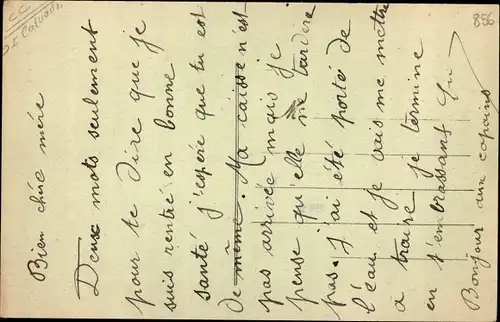 Bien chère mère
Deux mots seulement
pour te dire que je
suis rentré en bonne
santé j'espère que tu est
de même. Ma caisse n'est
pas arrivée mais je
pense qu'elle ne tardera
pas. j'ai été porté de
l'eau et je vais me mettre
à traire je termine
en t'embrassant
Bonjour aux copains
CC
Calvados
856